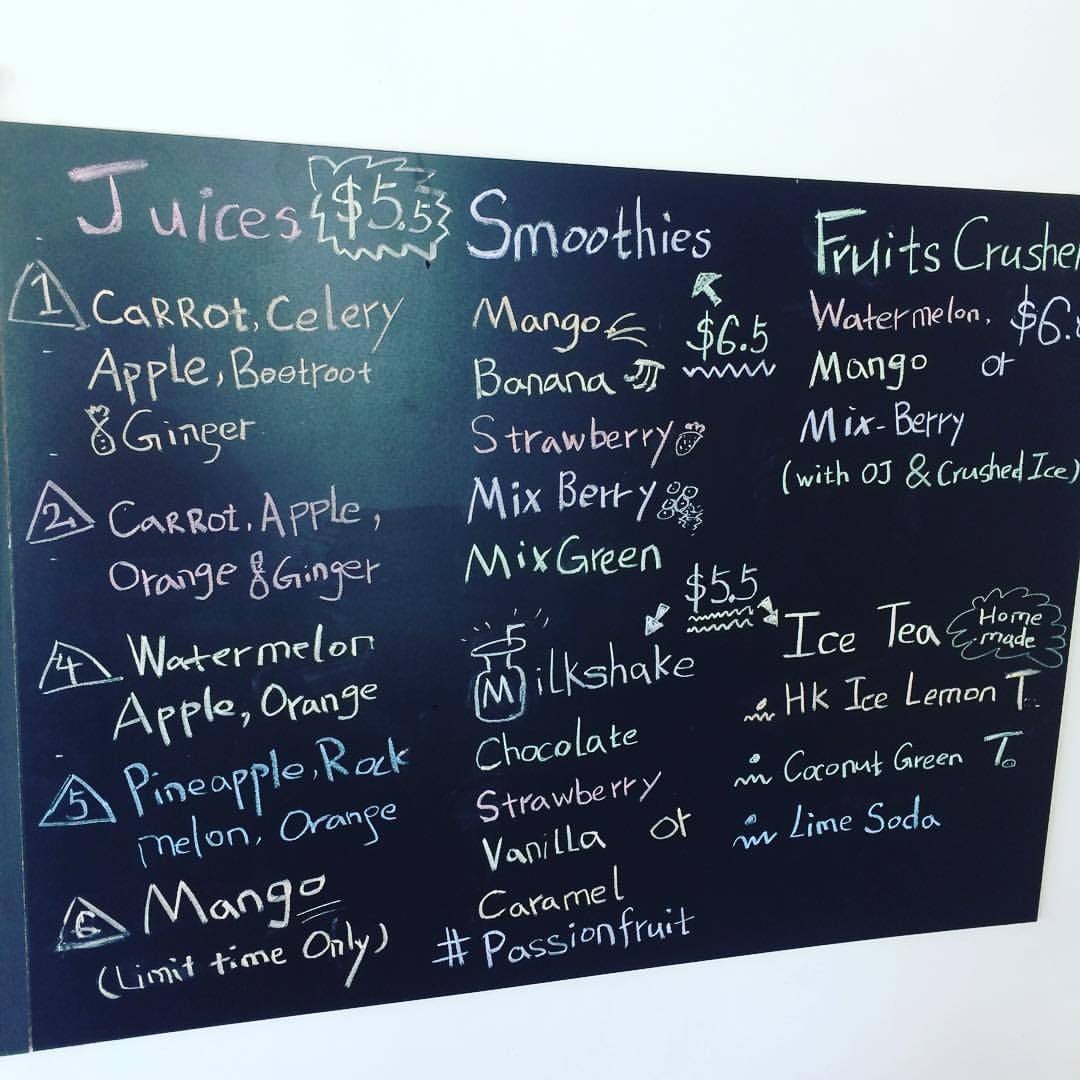 Juices $5.5
1 Carrot, Celery
Apple, Beetroot
& Ginger
2 Carrot, Apple,
Orange & Ginger
4 Watermelon
Apple, Orange
5 Pineapple, Rock
melon, Orange
6 Mango
(Limit time Only)
Smoothies
$6.5
Mango
Banana
Strawberry
Mix Berry
Mix Green
$5.5
Milkshake
Chocolate
Strawberry
Vanilla or
Caramel
# Passionfruit
Fruits Crusher
Watermelon,
Mango or
Mix-Berry
(with OJ & Crushed Ice)
Ice Tea Home
made
HK Ice Lemon T.
Coconut Green T.
Lime Soda